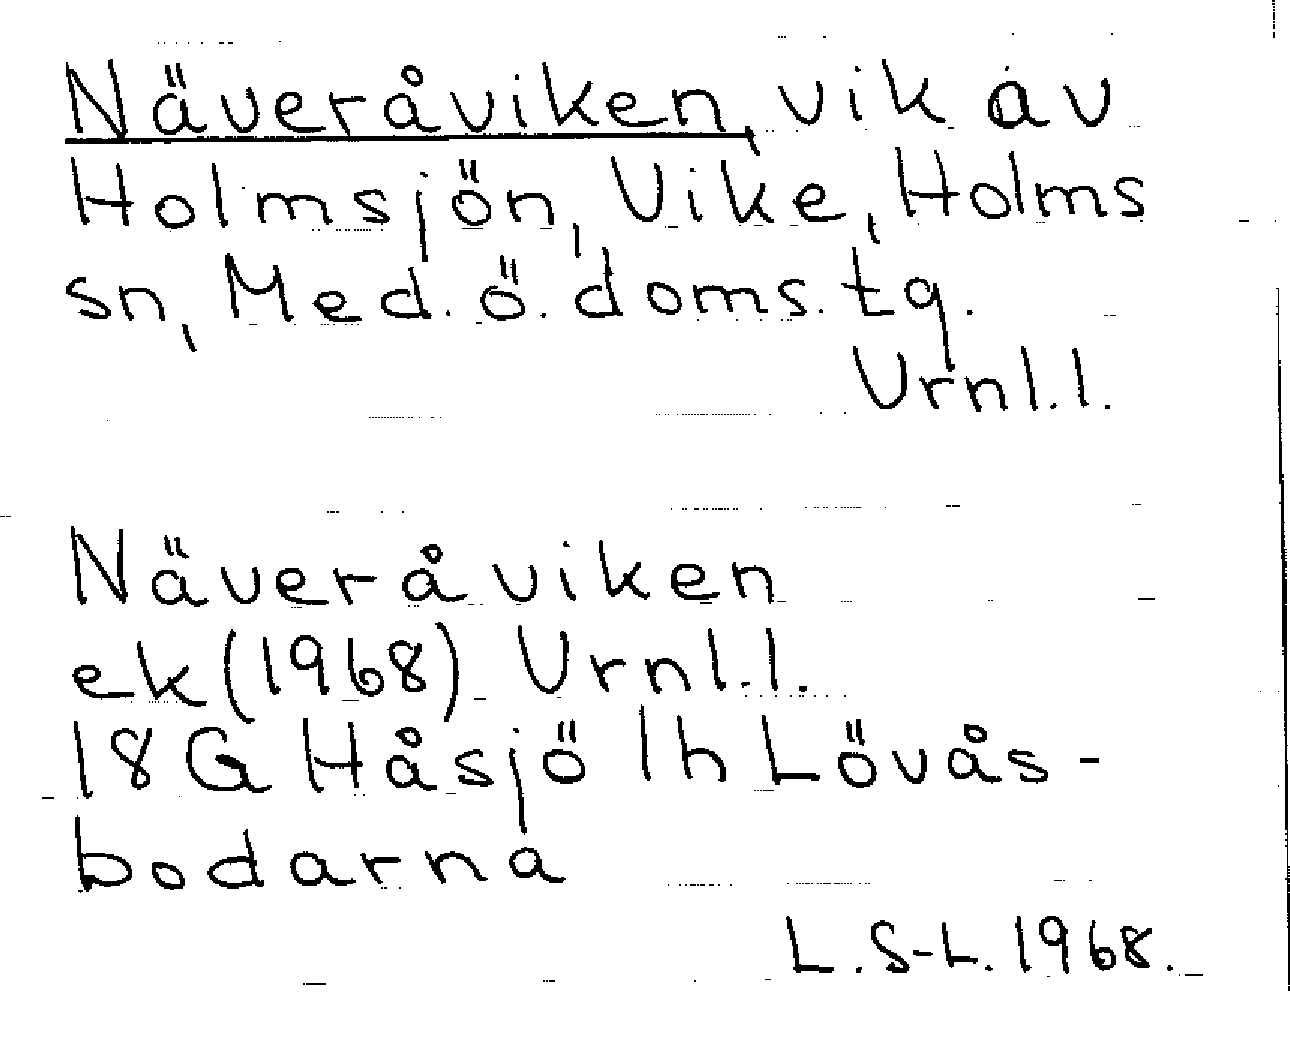 Näveråviken, vik av
Holmsjön, Vike, Holms
sn, Med. ö. doms. tg.
Urnl.l.
Näveråviken
ek (1968) Urnl.l.
18G Håsjö 1h Lövås-
bodarna
L. S-L. 1968.